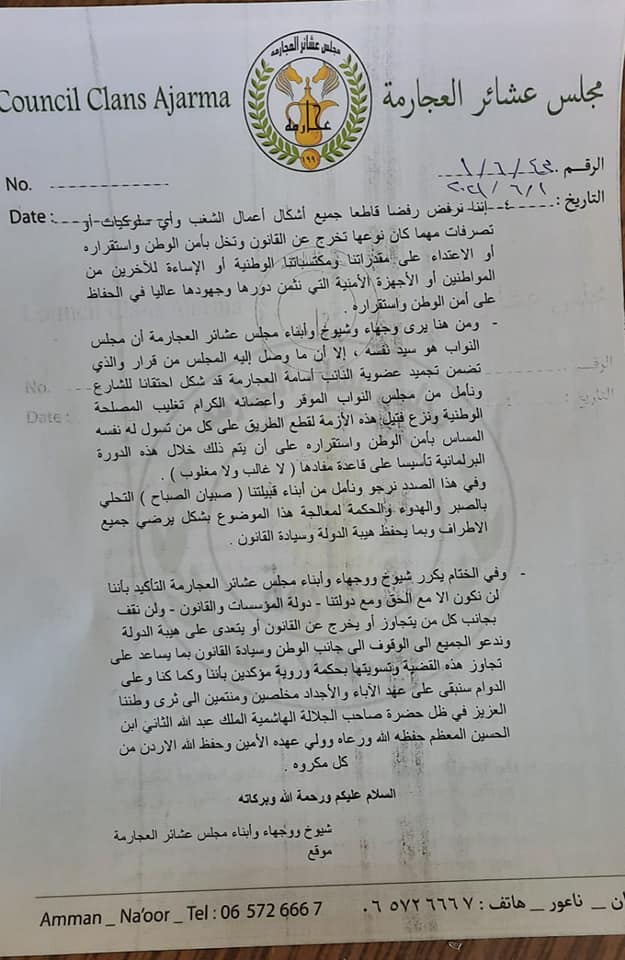 مجلس عشائر العجارمة
عجارمة
١٩٩
Council Clans Ajarma
مجلس عشائر العجارمة
No. ----------------
الرقم
Date :
التاريخ : ٢٠٢١/٦/١
٤- إننا نرفض رفضا قاطعا جميع أشكال أعمال الشغب وأي سلوكيات أو
تصرفات مهما كان نوعها تخرج عن القانون وتخل بأمن الوطن واستقراره
أو الاعتداء على مقدراتنا ومكتسباتنا الوطنية أو الإساءة للآخرين من
المواطنين أو الأجهزة الأمنية التي نثمن دورها وجهودها عاليا في الحفاظ
على أمن الوطن واستقراره .
- ومن هنا يرى وجهاء وشيوخ وأبناء مجلس عشائر العجارمة أن مجلس
النواب هو سيد نفسه ، إلا أن ما وصل إليه المجلس من قرار والذي
تضمن تجميد عضوية النائب أسامة العجارمة قد شكل احتقانا للشارع
ونأمل من مجلس النواب الموقر وأعضائه الكرام تغليب المصلحة
الوطنية ونزع فتيل هذه الأزمة لقطع الطريق على كل من تسول له نفسه
المساس بأمن الوطن واستقراره على أن يتم ذلك خلال هذه الدورة
البرلمانية تأسيسا على قاعدة مفادها ( لا غالب ولا مغلوب ) .
وفي هذا الصدد نرجو ونأمل من أبناء قبيلتنا ( صبيان الصباح ) التحلي
بالصبر والهدوء والحكمة لمعالجة هذا الموضوع بشكل يرضي جميع
الاطراف وبما يحفظ هيبة الدولة وسيادة القانون .
- وفي الختام يكرر شيوخ ووجهاء وأبناء مجلس عشائر العجارمة التأكيد بأننا
لن نكون الا مع الحق ومع دولتنا - دولة المؤسسات والقانون - ولن نقف
بجانب كل من يتجاوز أو يخرج عن القانون أو يتعدى على هيبة الدولة
وندعو الجميع الى الوقوف الى جانب الوطن وسيادة القانون بما يساعد على
تجاوز هذه القضية وتسويتها بحكمة وروية مؤكدين بأننا وكما كنا وعلى
الدوام سنبقى على عهد الآباء والأجداد مخلصين ومنتمين الى ثرى وطننا
العزيز في ظل حضرة صاحب الجلالة الهاشمية الملك عبد الله الثاني ابن
الحسين المعظم حفظه الله ورعاه وولي عهده الأمين وحفظ الله الاردن من
كل مكروه .
السلام عليكم ورحمة الله وبركاته
شيوخ ووجهاء وأبناء مجلس عشائر العجارمة
موقع
Amman _ Na'oor _ Tel : 06 572 666 7
ان _ ناعور _ هاتف : ٠٦ ٥٧٢٦٦٦٧